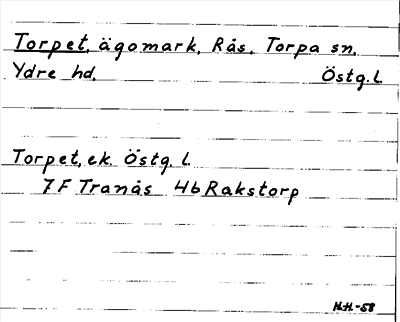 Torpet, ägomark, Rås, Torpa sn,
Ydre hd. Östg. l.
Torpet, ek. Östg. l.
7 F Tranås 4b Rakstorp
H.H.-58